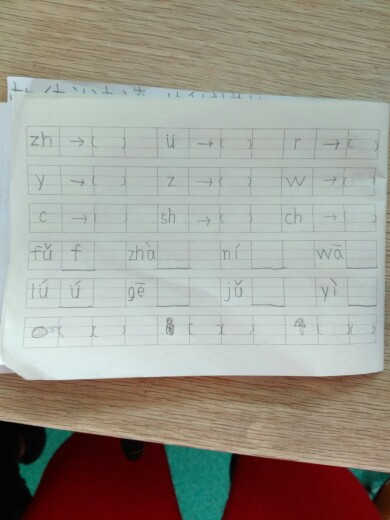 zh → ( ) ü → ( ) r → ( )
y → ( ) z → ( ) w → ( )
c → ( ) sh → ( ) ch → ( )
fǔ f zhà ní wā
lú ú gē jǔ yì
( ) ( ) ( ) ( ) ( ) ( )